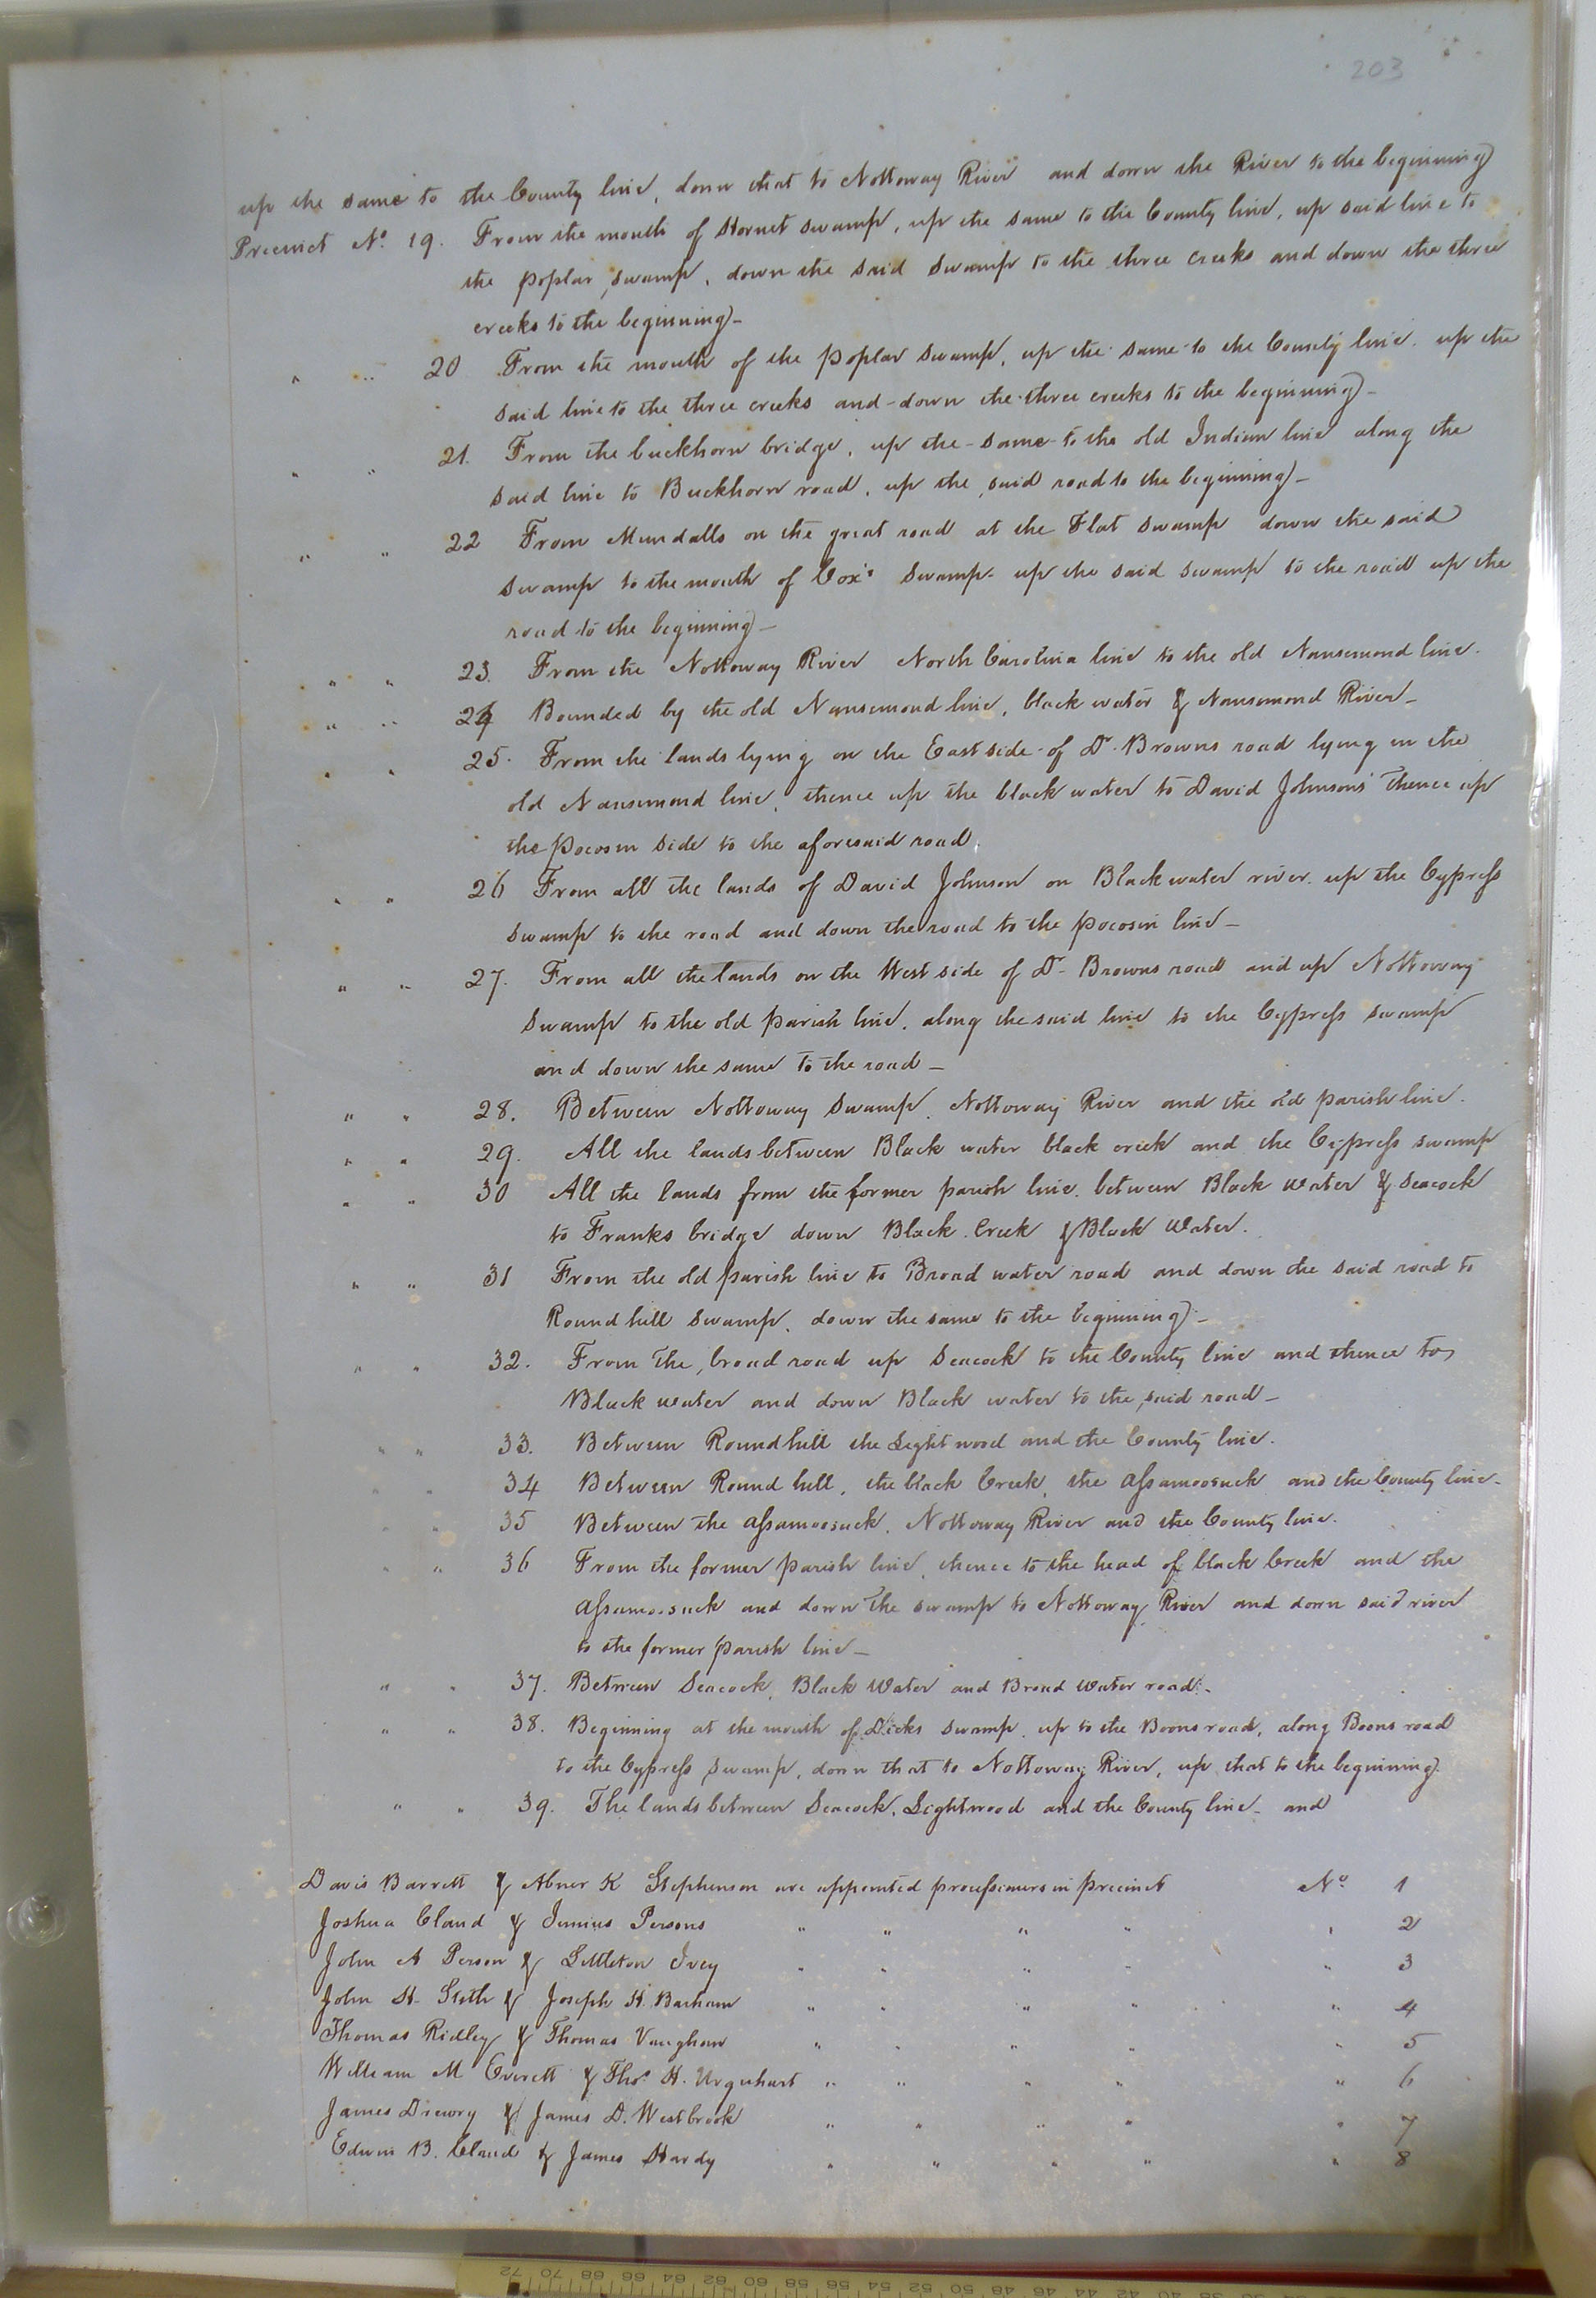 203
up the same to the County line, down that to Nottoway River and down the River to the beginning
Precinct No. 19. From the mouth of Hornet swamp, up the same to the County line, up said line to
the poplar swamp, down the said swamp to the three creeks and down the three
creeks to the beginning -
" " 20 From the mouth of the poplar swamp, up the same to the County line, up the
said line to the three creeks and down the three creeks to the beginning -
" " 21. From the buckhorn bridge, up the same to the old Indian line along the
said line to Buckhorn road, up the said road to the beginning -
" " 22 From Mundalls on the great road at the Flat swamp down the said
swamp to the mouth of Cox's swamp up the said swamp to the road up the
road to the beginning -
" " 23. From the Nottoway River North Carolina line to the old Nansemond line.
" " 24 Bounded by the old Nansemond line, black water & Nansemond River -
" " 25. From the lands lying on the East side of Dr. Browns road lying in the
old Nansemond line, thence up the black water to David Johnsons thence up
the pocosin side to the aforesaid road.
" " 26 From all the lands of David Johnson on Blackwater river up the Cypress
swamp to the road and down the road to the pocosin line -
" " 27. From all the lands on the West side of Dr. Browns road and up Nottoway
swamp to the old parish line, along the said line to the Cypress swamp
and down the same to the road -
" " 28. Between Nottoway swamp, Nottoway River and the old parish line.
" " 29. All the lands between Black water black creek and the Cypress swamp
" " 30 All the lands from the former parish line, between Black water & Seacock
to Franks bridge down Black Creek & Black Water.
" " 31 From the old parish line to Broad water road and down the said road to
Round hill swamp, down the same to the beginning -
" " 32. From the broad road up Seacock to the County line and thence to
Black water and down Black water to the said road -
" " 33. Between Round hill the Lightwood and the County line.
" " 34 Between Round hill, the black Creek, the Assamoosuck and the County line -
" " 35 Between the Assamoosuck, Nottoway River and the County line.
" " 36 From the former parish line, thence to the head of black Creek and the
Assamoosuck and down the swamp to Nottoway River and down said river
to the former parish line -
" " 37. Between Seacock, Black Water and Broad Water road. -
" " 38. Beginning at the mouth of Dicks swamp, up to the Boons road, along Boons road
to the Cypress swamp, down that to Nottoway River, up that to the beginning.
" " 39. The lands between Seacock, Lightwood and the County line - and
Davis Barrett & Abner K Stephenson are appointed processioners in precinct No. 1
Joshua Claud & Junius Persons " " " " " 2
John A Person & Littleton Ivey " " " " " 3
John H. Sluth & Joseph H. Barham " " " " " 4
Thomas Ridley & Thomas Vaughan " " " " " 5
William M Everett & Thos. H. Urquhart " " " " " 6
James Drewry & James D. Westbrook " " " " " 7
Edwin B. Claud & James Hardy " " " " " 8
72 70 68 66 64 62 60 58 56 54 52 50 48 46 44 42 40